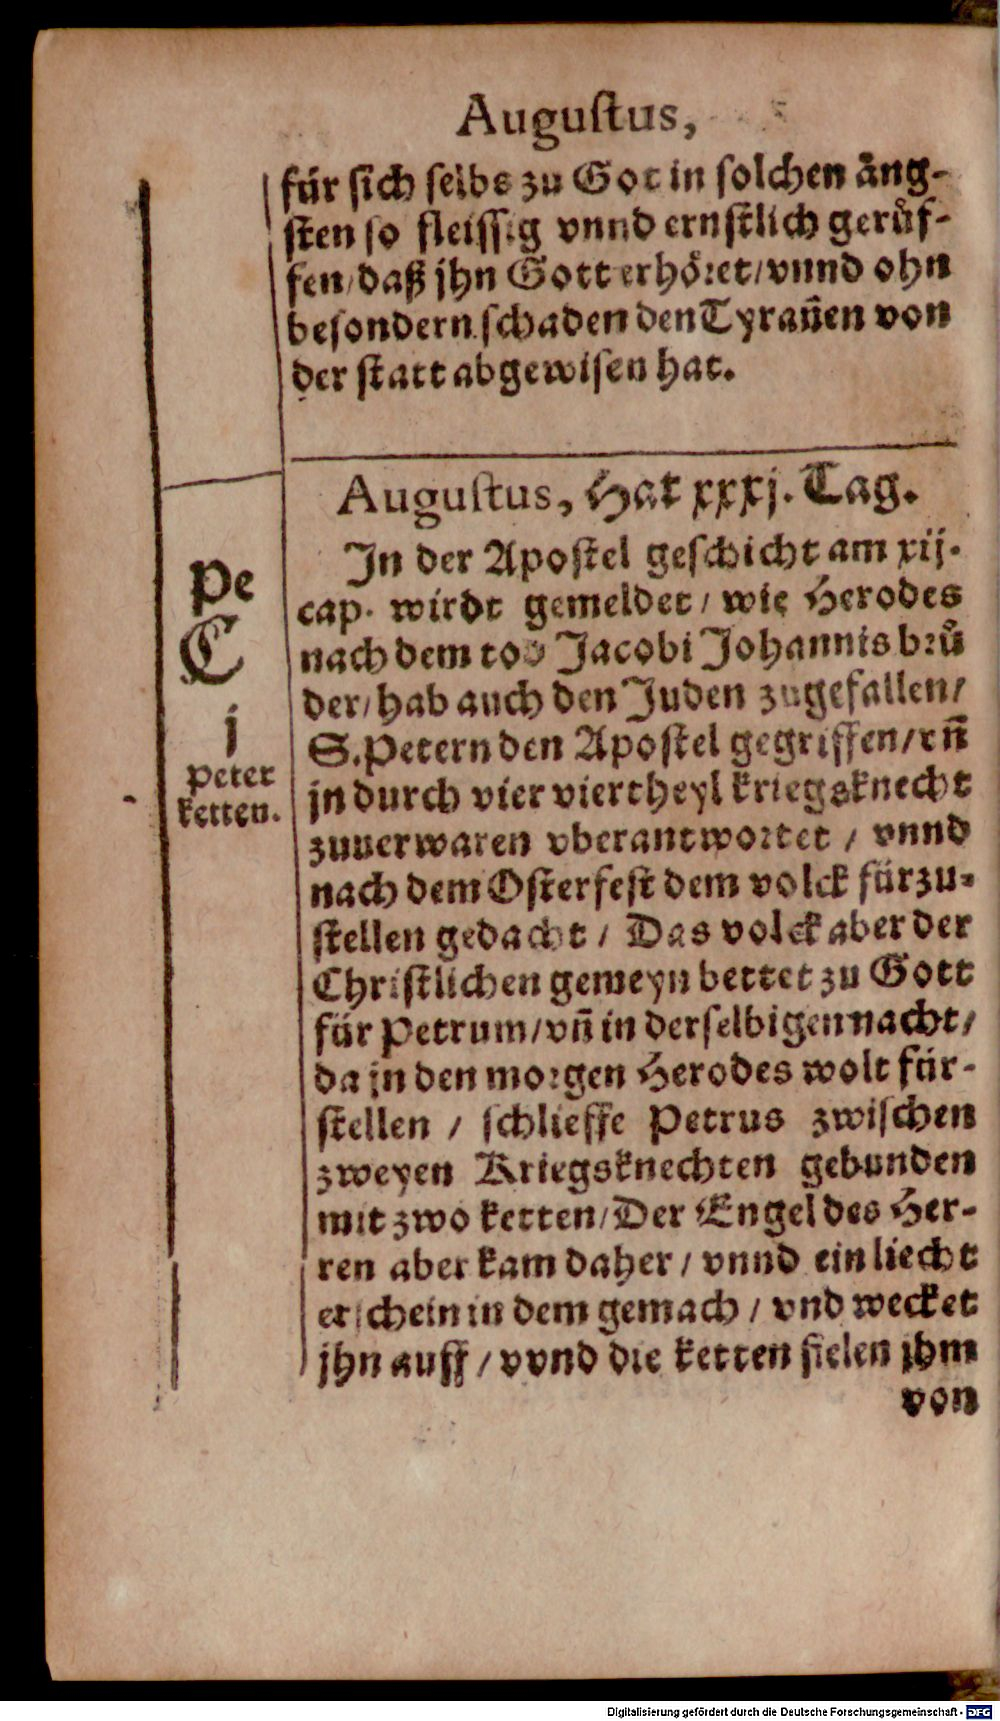 Augustus,
für sich selbs zu Got in solchen äng-
sten so fleissig vnnd ernstlich gerůf-
fen/daß jhn Gott erhöret/vnnd ohn
besondern schaden den Tyrañen von
der statt abgewisen hat.
Augustus, Hat xxxj. Tag.
In der Apostel geschicht am xij.
cap. wirdt gemeldet/ wie Herodes
nach dem tod Jacobi Johannis brů
der/hab auch den Juden zugefallen/
S.Petern den Apostel gegriffen/vñ
jn durch vier viertheyl kriegsknecht
zuuerwaren vberantwortet / vnnd
nach dem Osterfest dem volck fürzu-
stellen gedacht / Das volck aber der
Christlichen gemeyn bettet zu Gott
für Petrum/vñ in derselbigen nacht/
da jn den morgen Herodes wolt für-
stellen / schlieffe Petrus zwischen
zweyen Kriegsknechten gebunden
mit zwo ketten/Der Engel des Her-
ren aber kam daher / vnnd ein liecht
erschein in dem gemach / vnd wecket
jhn auff / vvnd die ketten fielen jhm
von
Pe
C
j
Peter
ketten.
Digitalisierung gefördert durch die Deutsche Forschungsgemeinschaft - DFG